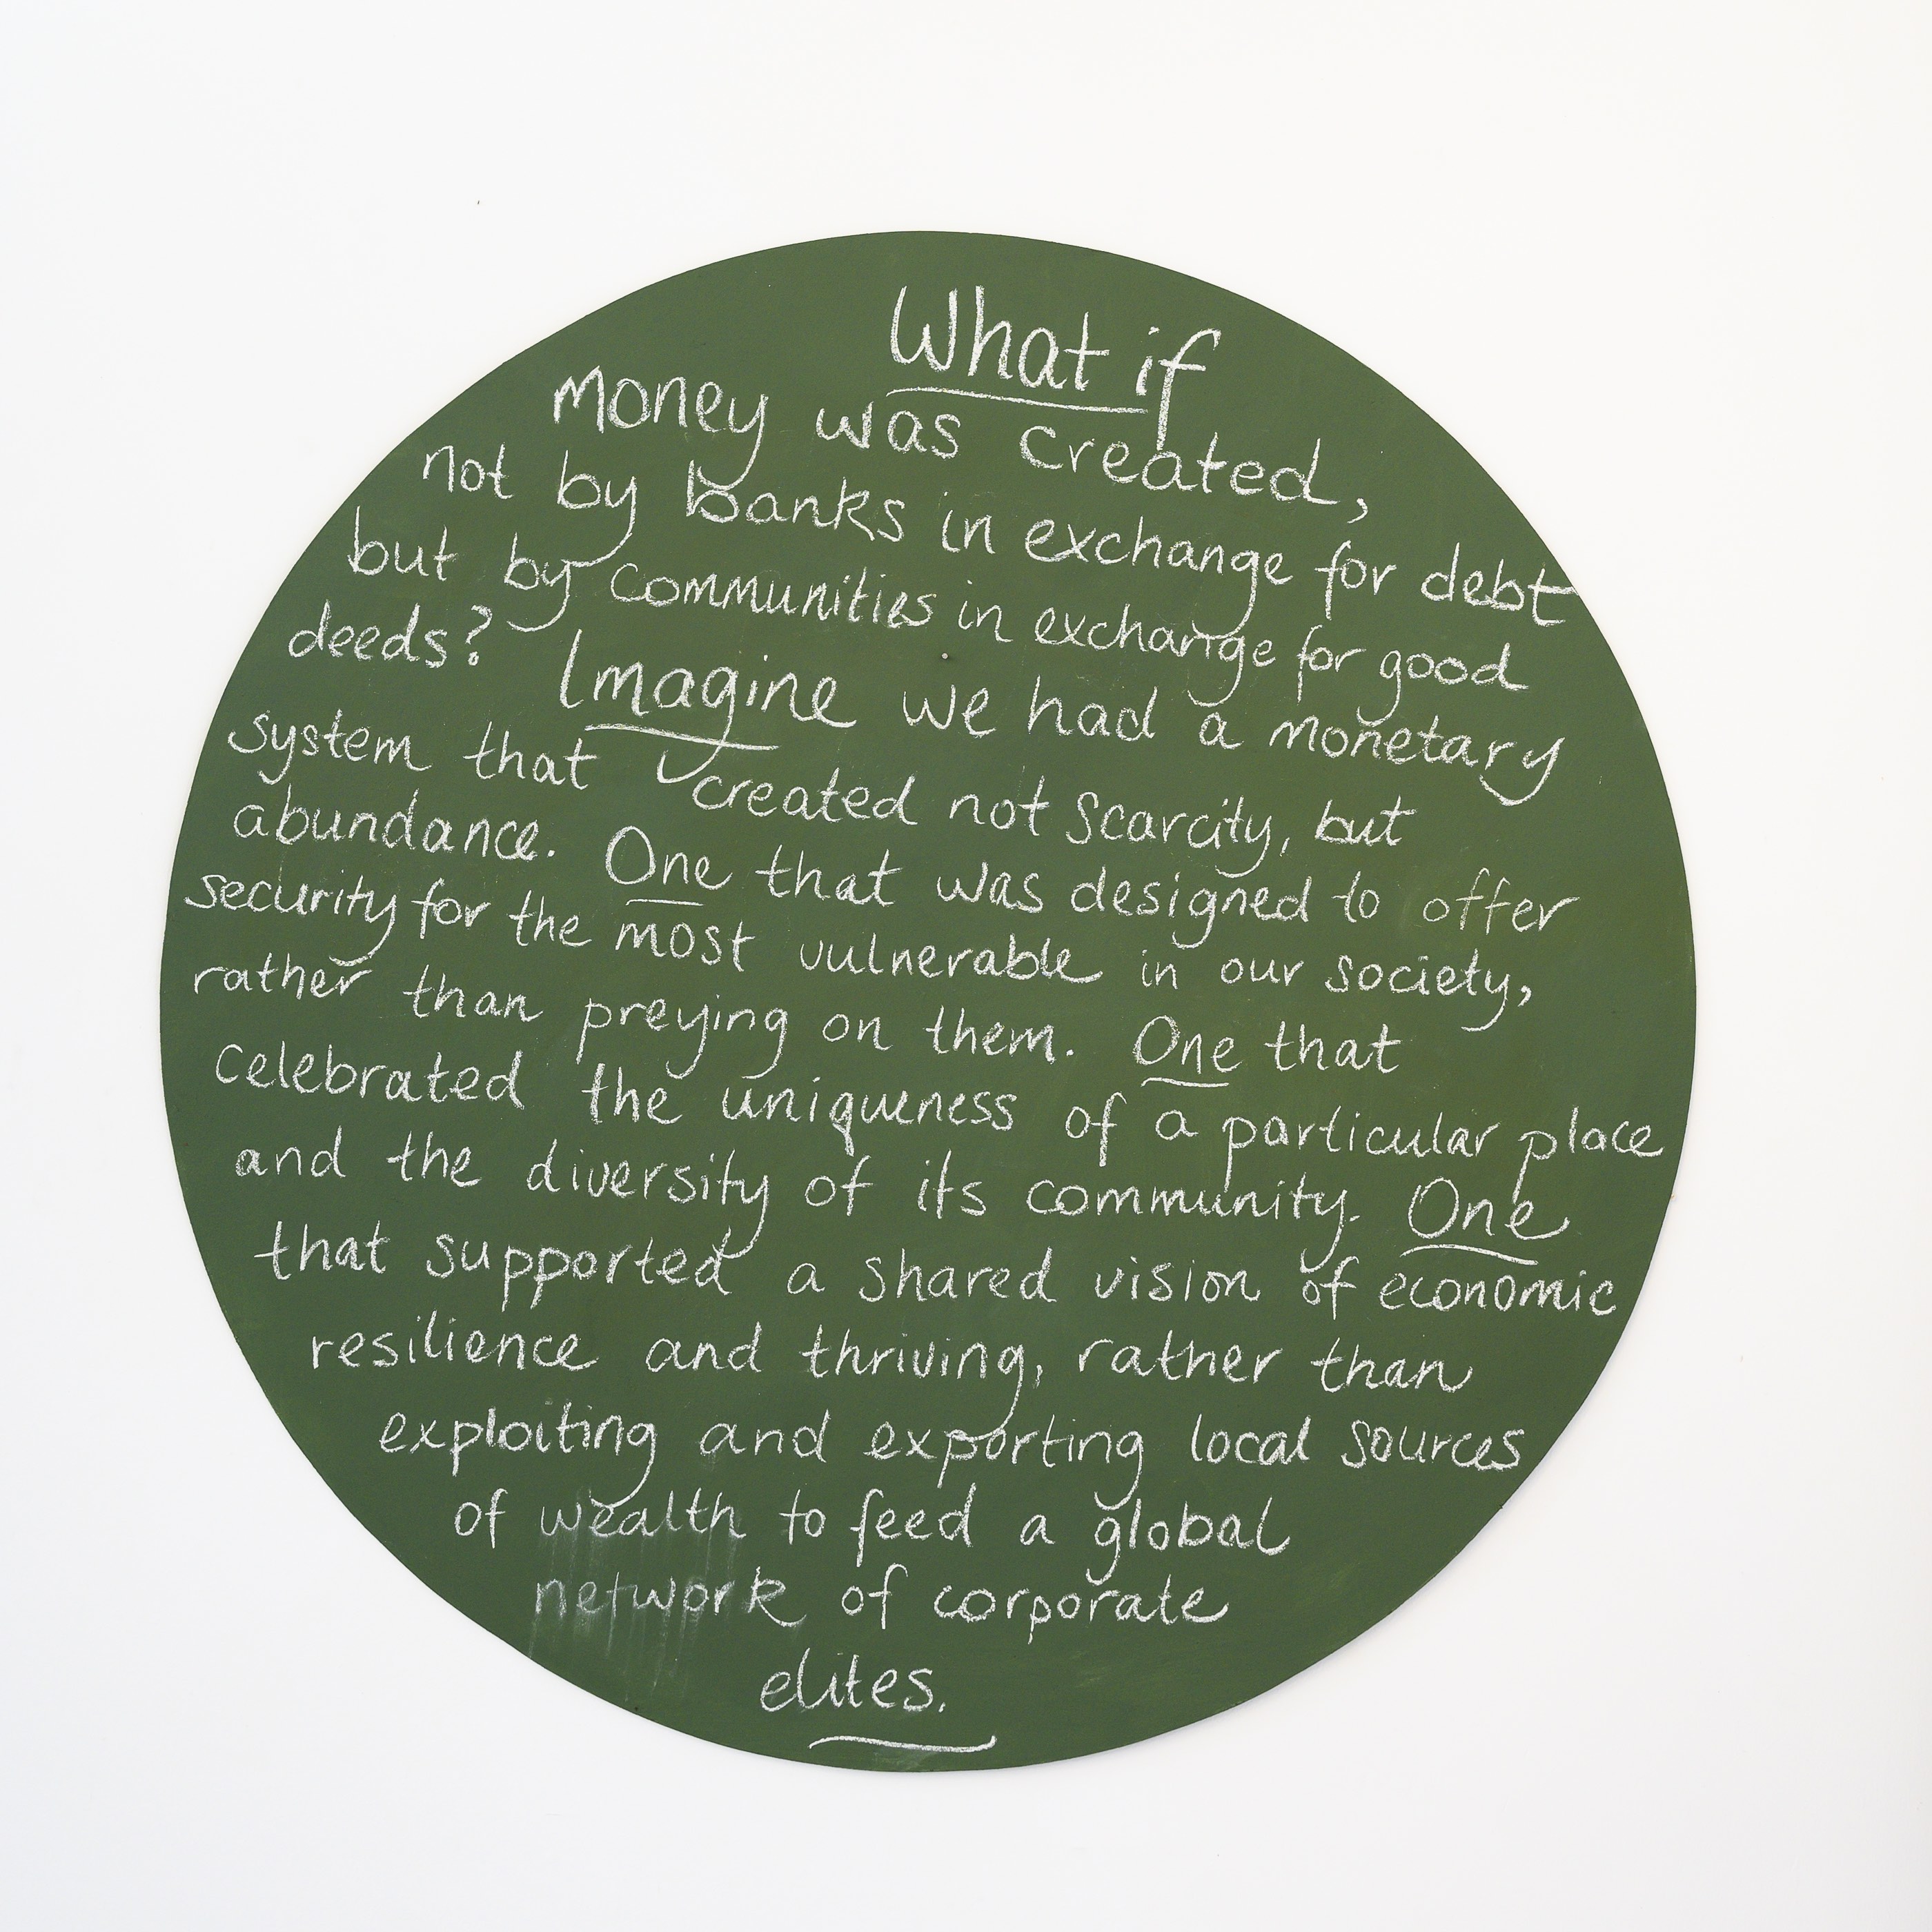 What if
money was created,
not by banks in exchange for debt
but by communities in exchange for good
deeds? Imagine we had a monetary
system that created not scarcity, but
abundance. One that was designed to offer
security for the most vulnerable in our society,
rather than preying on them. One that
celebrated the uniqueness of a particular place
and the diversity of its community. One
that supported a shared vision of economic
resilience and thriving, rather than
exploiting and exporting local sources
of wealth to feed a global
network of corporate
elites.